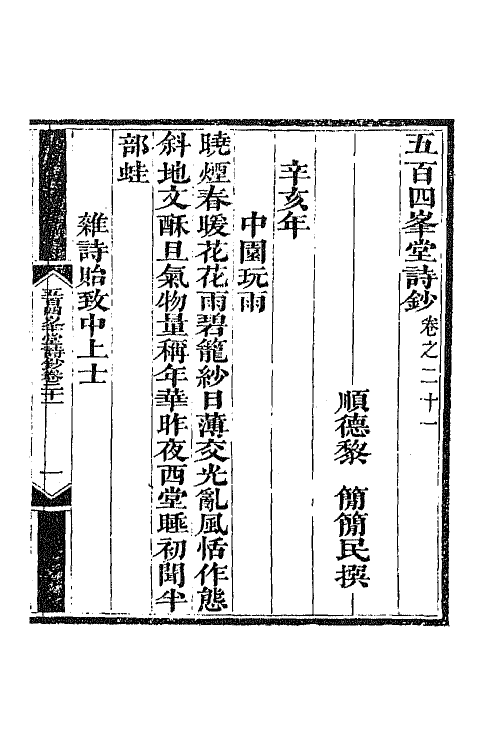 五百四峯堂詩鈔 卷之二十一
順德黎 簡簡民撰
辛亥年
中園玩雨
曉煙春暖花花雨碧籠紗日薄交光亂風恬作態
斜地文酥且氣物量稱年華昨夜西堂睡初聞半
部蛙
雜詩貽致中上士
五百四峯堂詩鈔卷二十一 一